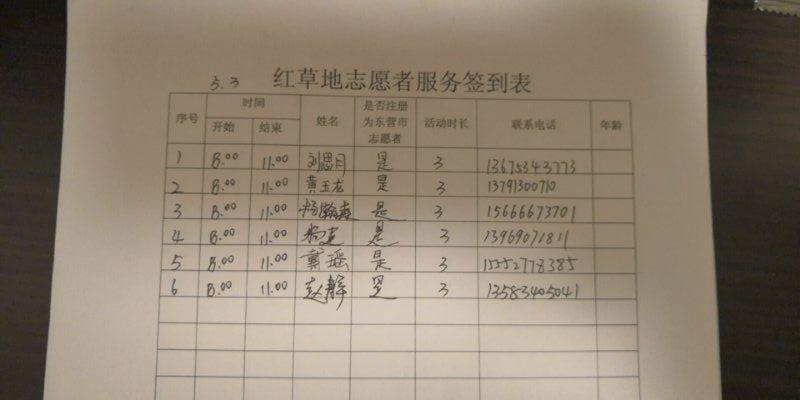 5.3 红草地志愿者服务签到表
序号 时间 开始 结束 姓名 是否注册为东营市志愿者 活动时长 联系电话 年龄
1 8:00 11:00 刘思月 是 3 13675343773
2 8:00 11:00 黄玉龙 是 3 13791300710
3 8:00 11:00 杨瀚森 是 3 15666673701
4 8:00 11:00 杨 是 3 13969071811
5 8:00 11:00 戴瑶 是 3 15552778385
6 8:00 11:00 赵静 是 3 13583405041